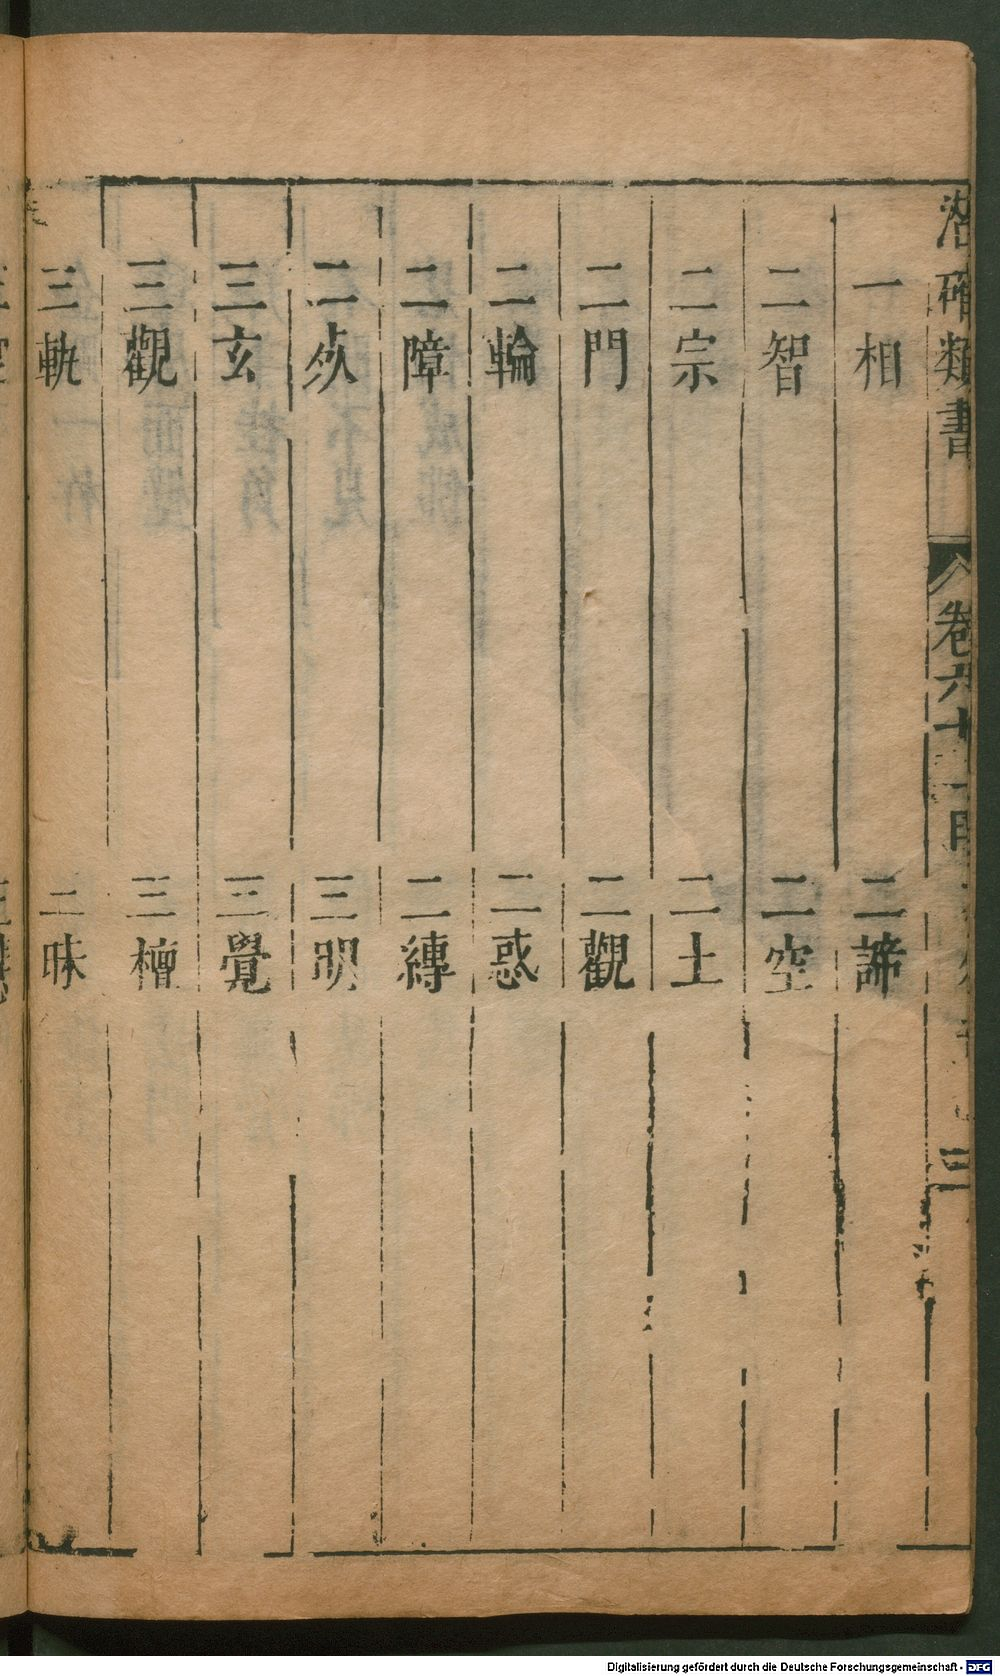 潛確類書
卷六十
一相 二諦
二智 二空
二宗 二土
二門 二觀
二輪 二惑
二障 二縳
二 三明
三玄 三覺
三觀 三檀
三軌 三昧
Digitalisierung gefördert durch die Deutsche Forschungsgemeinschaft - DFG